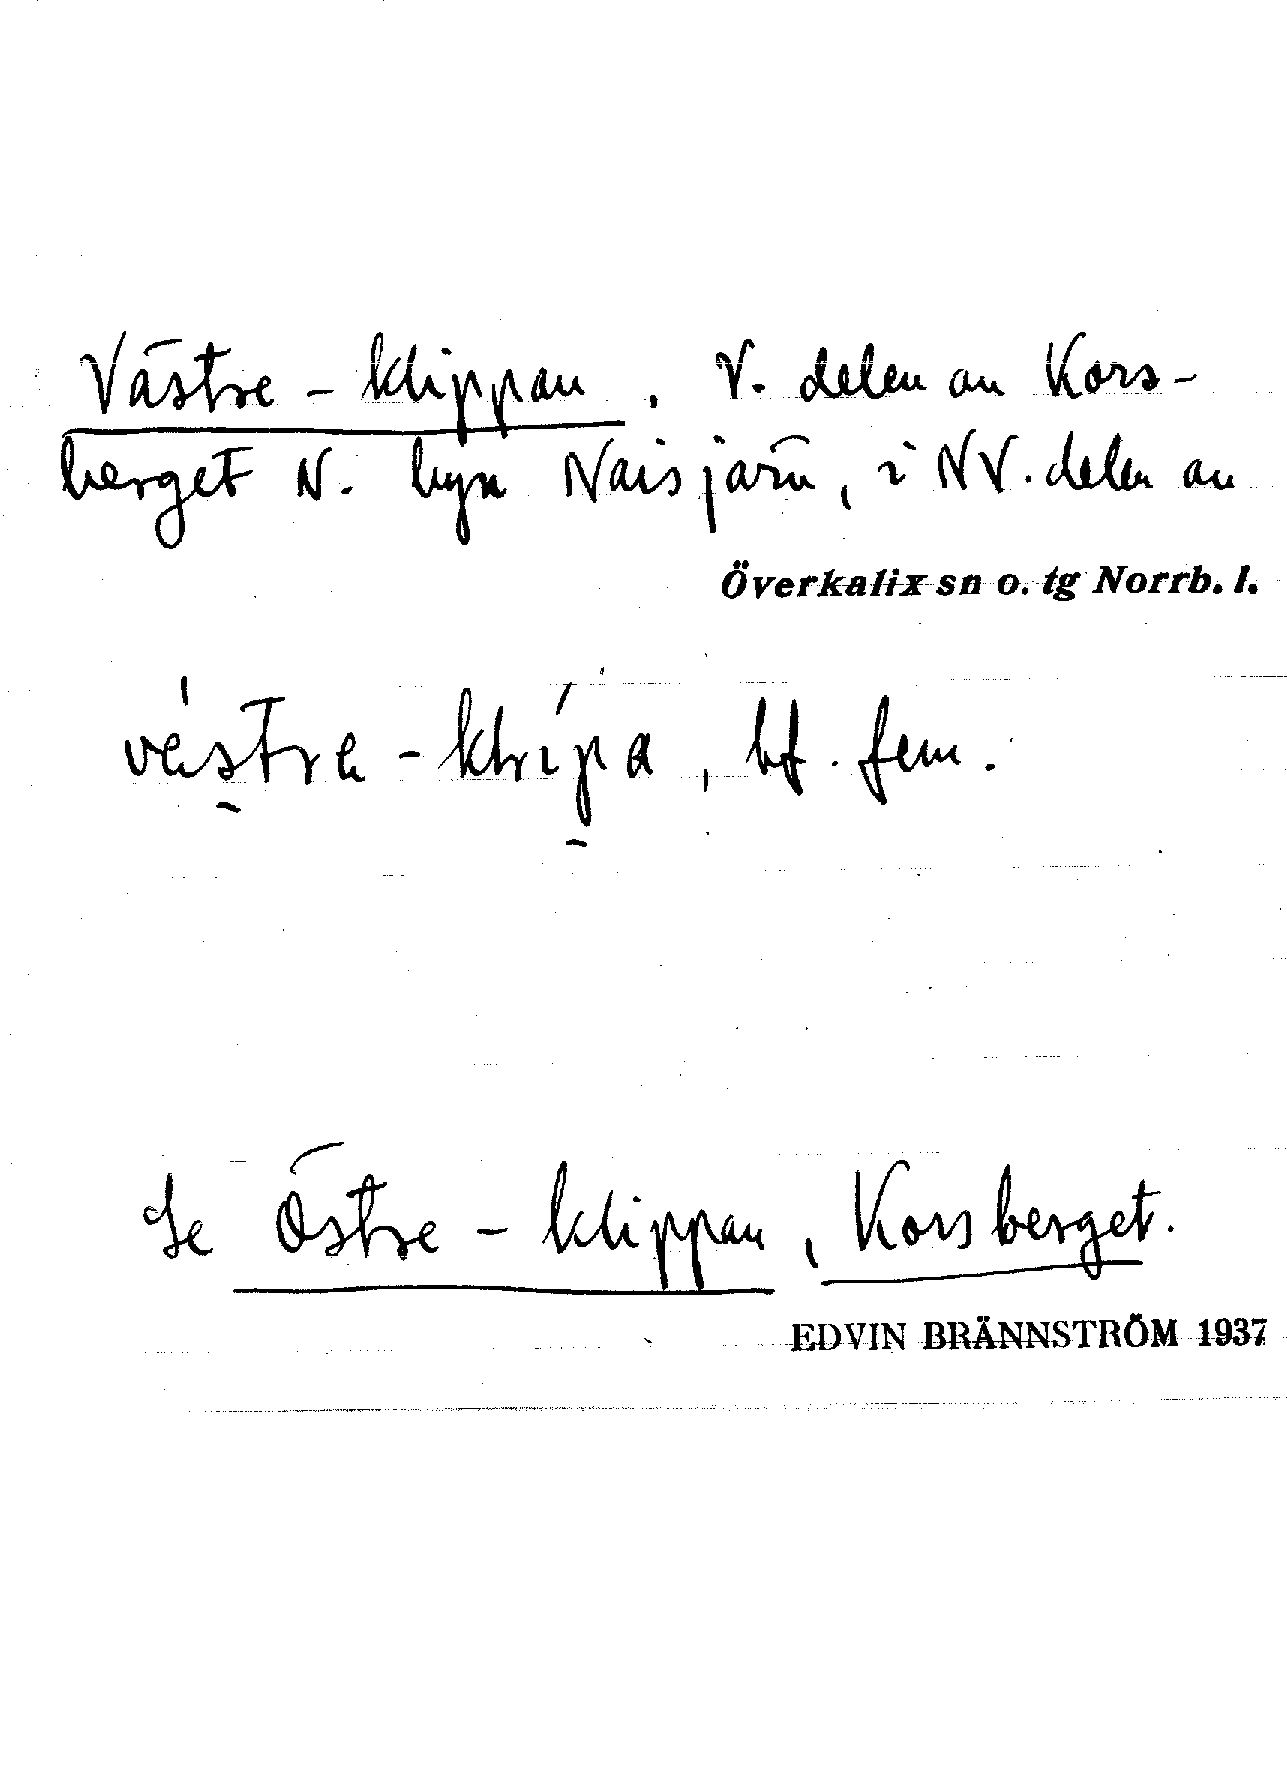 Västre-klippan, V. delen av Kors-
berget N. byn Naisjärv, i NV. delen av
Överkalix sn o. tg Norrb. l.
bf. fem.
Se Östre-klippan, Korsberget.
EDVIN BRÄNNSTRÖM 1937